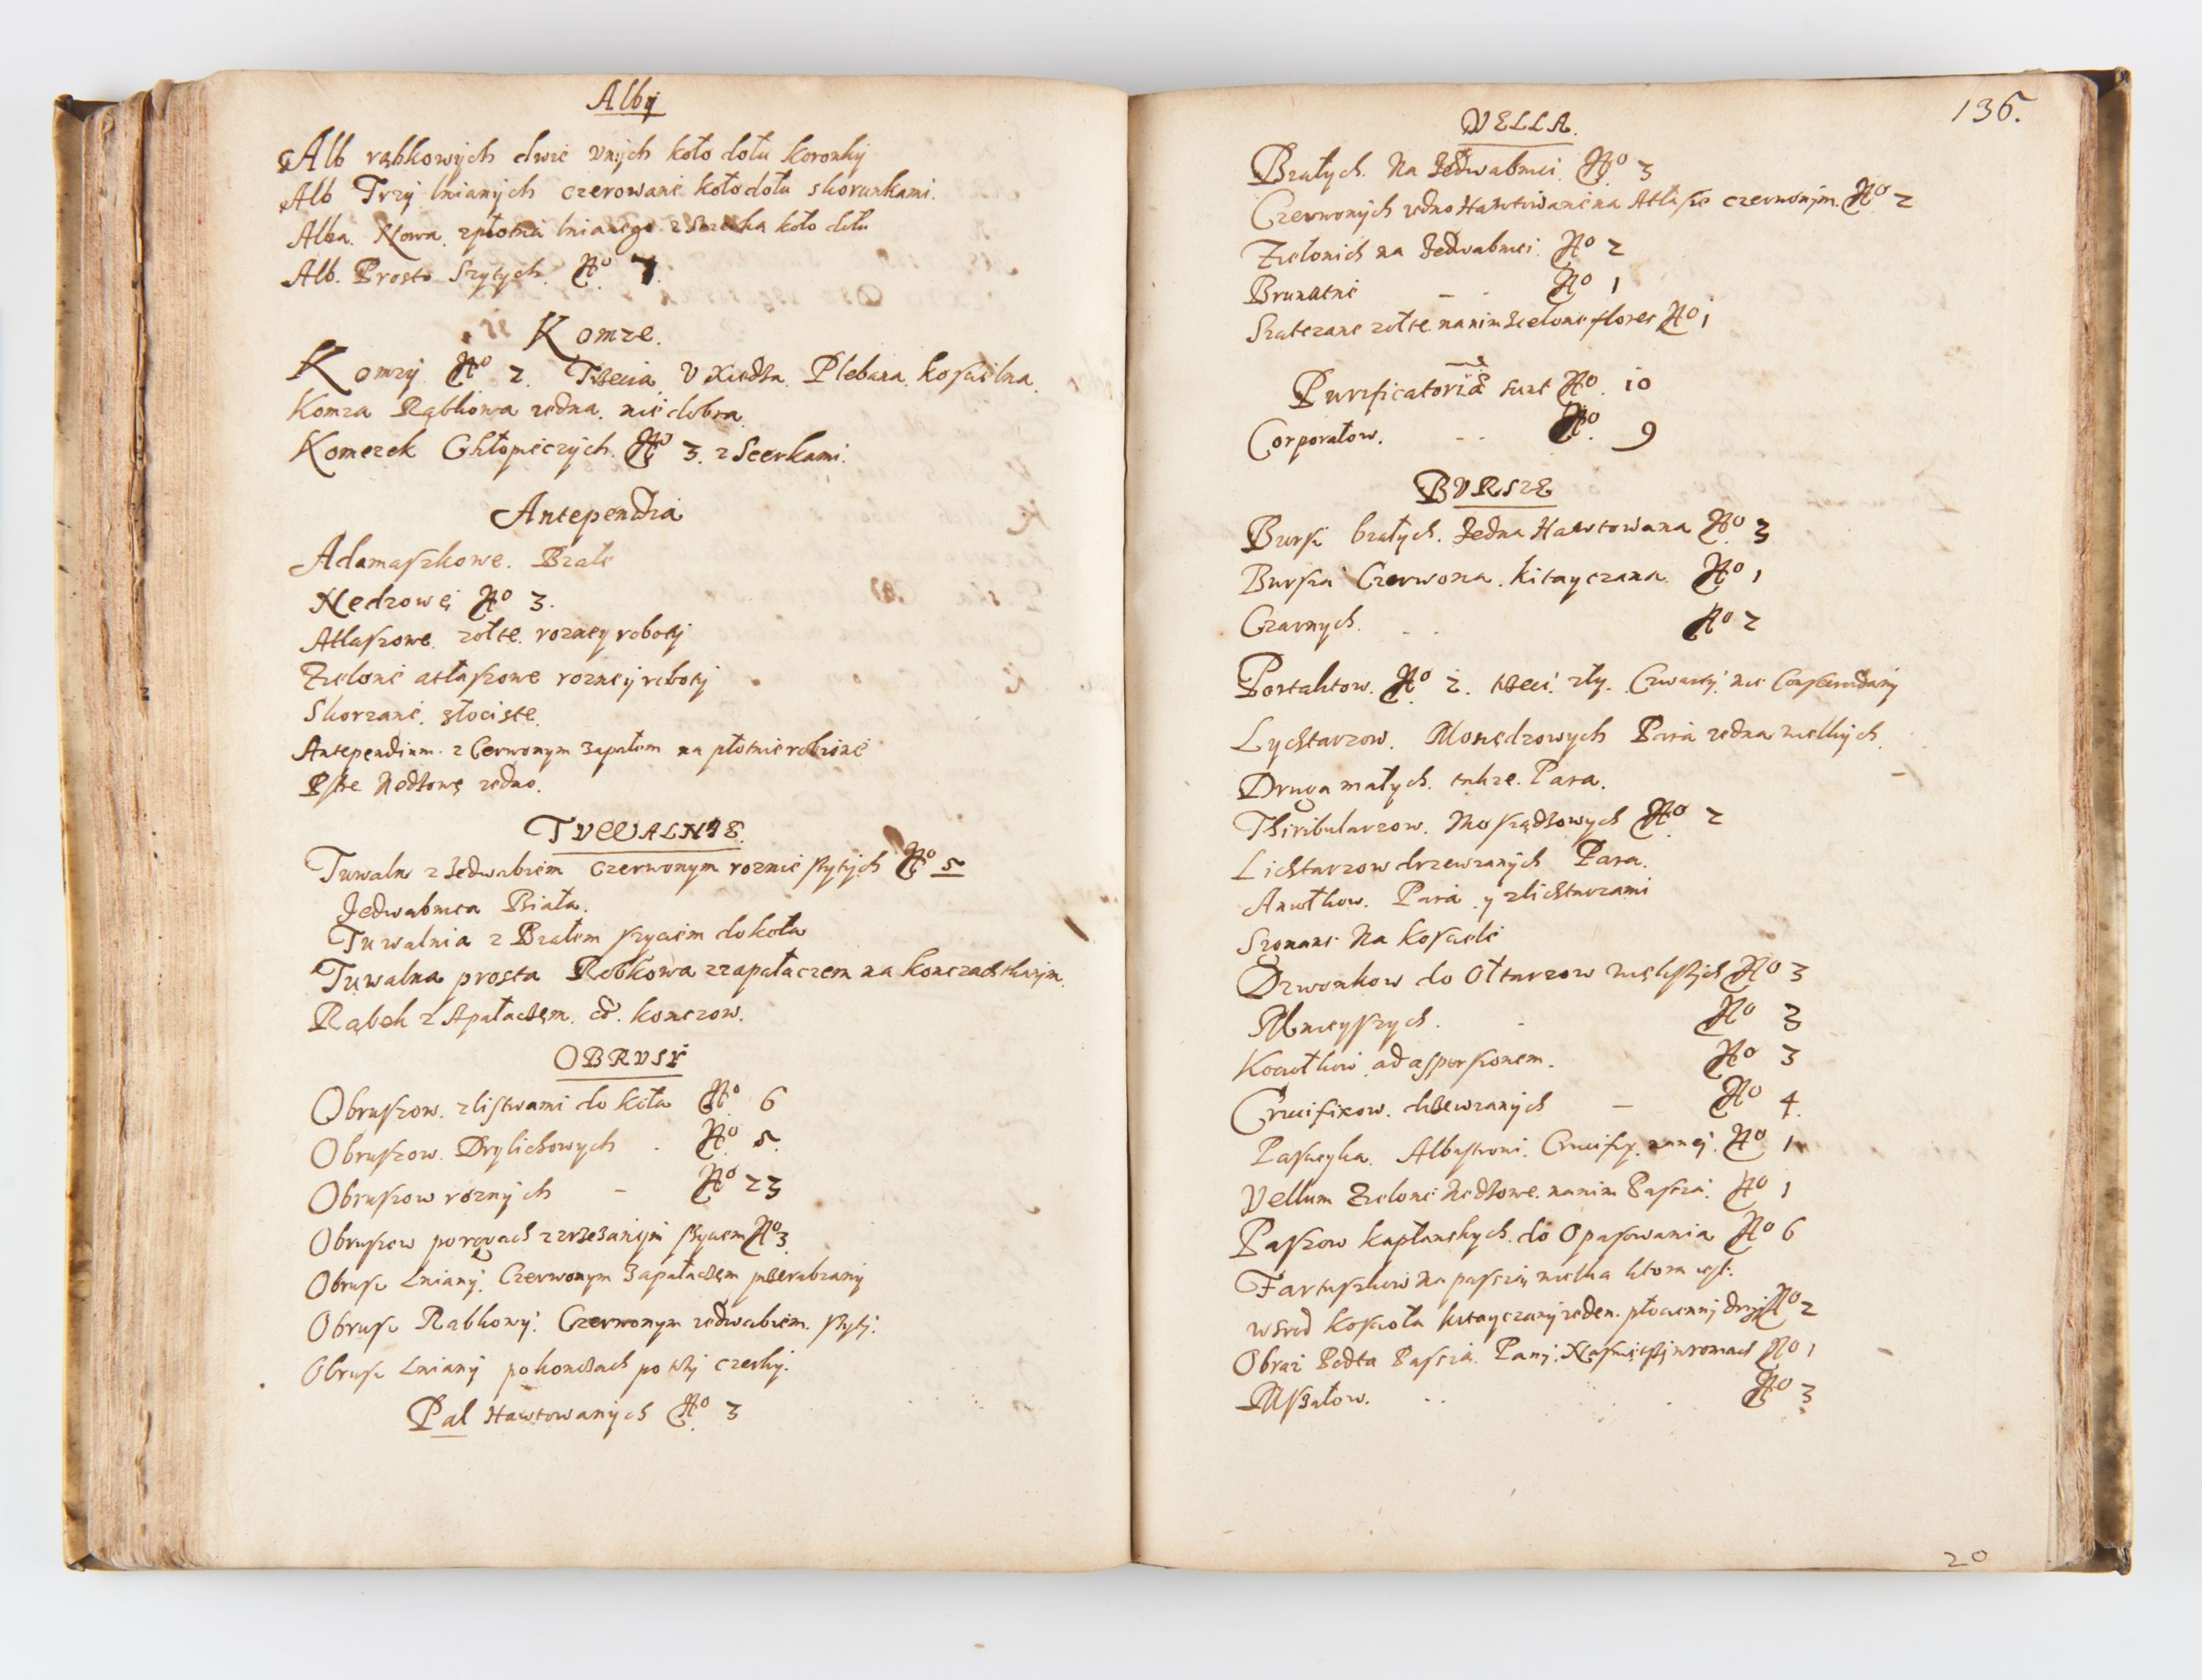 Alby
Alb rąbkowych dwie v nych koło dołu koronky
Alb Trzy lnianych czerowane koło dołu skorunkami.
Alba. Nowa. z płotna lnianego z Szerka koło dołu
Alb. Prosto Szytych. No 7.
Komze.
Komzy No 2. Trzecia V Xiędza. Plebana. kościelna.
Komza Rąbkowa iedna. nie dobra.
Komezek Chłopieczych. No 3. z Seerkami.
Antependia
Adamaszkowe. Białe
Nedzowe No 3.
Atłaszowe. żołte. rozney roboty
Zielone atłaszowe rozney roboty
Skorzane. złociste.
Antependium. z Cerwonym zapałem na płotnie robione
Pstre Nedzowe iedno.
TVWALNIE.
Tuwaln z Jedwabiem czerwonym roznie szytych No 5
Jedwabnica Biała.
Tuwalnia z Białem szyciem do koła
Tuwalna prosta Robkowa z zapałaczem na konczach tkanym.
Rąbek z Apałaczem. od. konczow.
OBRVSY
Obruszow. z listwami do koła No 6
Obruszow. Drylichowych. No 5.
Obruszow roznych – No 23
Obruszow po rogach z wrzezanym szyciem No 3.
Obrusz Lniany. Czerwonym zapałaczem przerabiany
Obrusz Rabkowy. Czerwonym iedwabiem. szyty.
Obrusz Lniany po konczach po trzy czerky.
Pal Hawtowanych No 3
136.
VELLA.
Białych. Na Jedwabnici. No 3
Czerwonych iedno Hawtowane na Atłasie czerwonym. No 2
Zielonich na Jedwabnici. No 2
Brunatne – - No 1
Szatczane żołte na nim zielone flores No 1
Purificatoria sunt No. 10
Corporałow. - - No. 9
BVRSZE
Bursz białych. Jedna Hawtowana No 3
Bursza Czerwona. kitayczana. No 1
Czarnych. - - No 2
Portaktow. No 2. trzeci. zły. Czwarty. nie
Lychtarzow. Mosiędzowych Para iedna wielkich.
Druga małych. takze. Para.
Thiribularzow. Mosządzowych No 2
Lichtarzow drzewianych Para.
Anołkow. Para. y z lichtarzami
Na Koscele
Dzwonkow do Ołtarzow wiekszych No 3
Mnieyszych. - No 3
ad aspersionem. No 3
Crucifixow. drzewianych – No 4.
Passyika. Albastrowi. No 1
Vellum Zielone Nedzowe. na nim Passia. No 1
Paszow kapłanskych. do Opasowania No 6
Fartuszkow na passię wielka ktora iest.
wsrod koscioła kitayczany ieden. płocienny drugi No 2
Obraz Passia. Pany. w ramach No 1
Mszałow. - - No 3
20